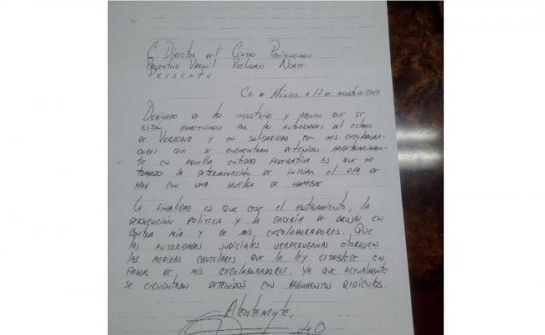 C. Director del Centro Penitenciario
Preventivo Varonil Reclusorio Norte
Presente
Cd. de México, a 17 de agosto de 2017
Derivado de las injusticias y abusos que se
están cometiendo por las autoridades del estado
de Veracruz y en solidaridad con mis excolabora-
dores que se encuentran detenidos arbitrariamen-
te en aquella entidad federativa es que he
tomado la determinación de iniciar el día de
hoy con una huelga de hambre.
La finalidad es que cese el hostigamiento, la
persecución política y la cacería de brujas en
contra mía y de mis excolaboradores. Que
las autoridades judiciales veracruzanas otorguen
las medidas cautelares que la ley establece en
favor de mis excolaboradores, ya que actualmente
se encuentran detenidos con argumentos ridículos.
Atentamente,